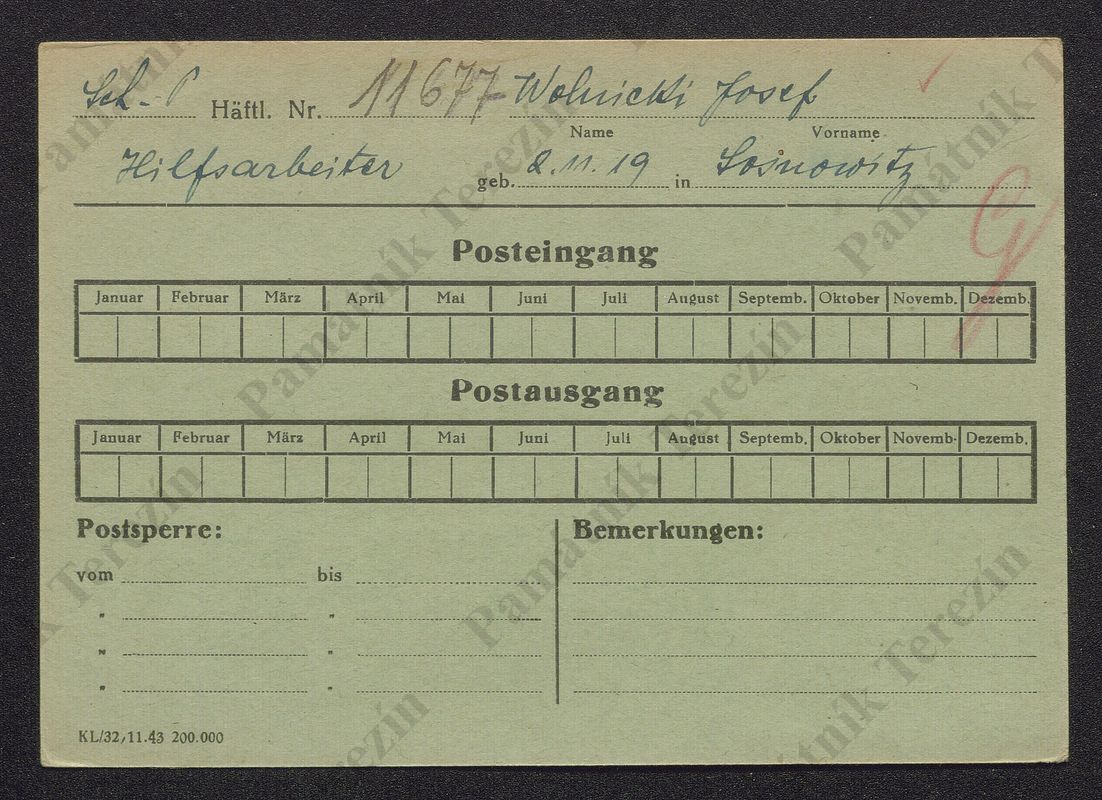 Sch.-P Häftl. Nr. 11677 Wolnicki Josef
Name Vorname
Hilfsarbeiter geb. 2.11.19 in Sosnowitz
Posteingang
Januar Februar März April Mai Juni Juli August Septemb. Oktober Novemb. Dezemb.
Postausgang
Januar Februar März April Mai Juni Juli August Septemb. Oktober Novemb. Dezemb.
Postsperre: Bemerkungen:
vom bis
" "
" "
" "
KL/32,11.43 200.000
Památník Terezín